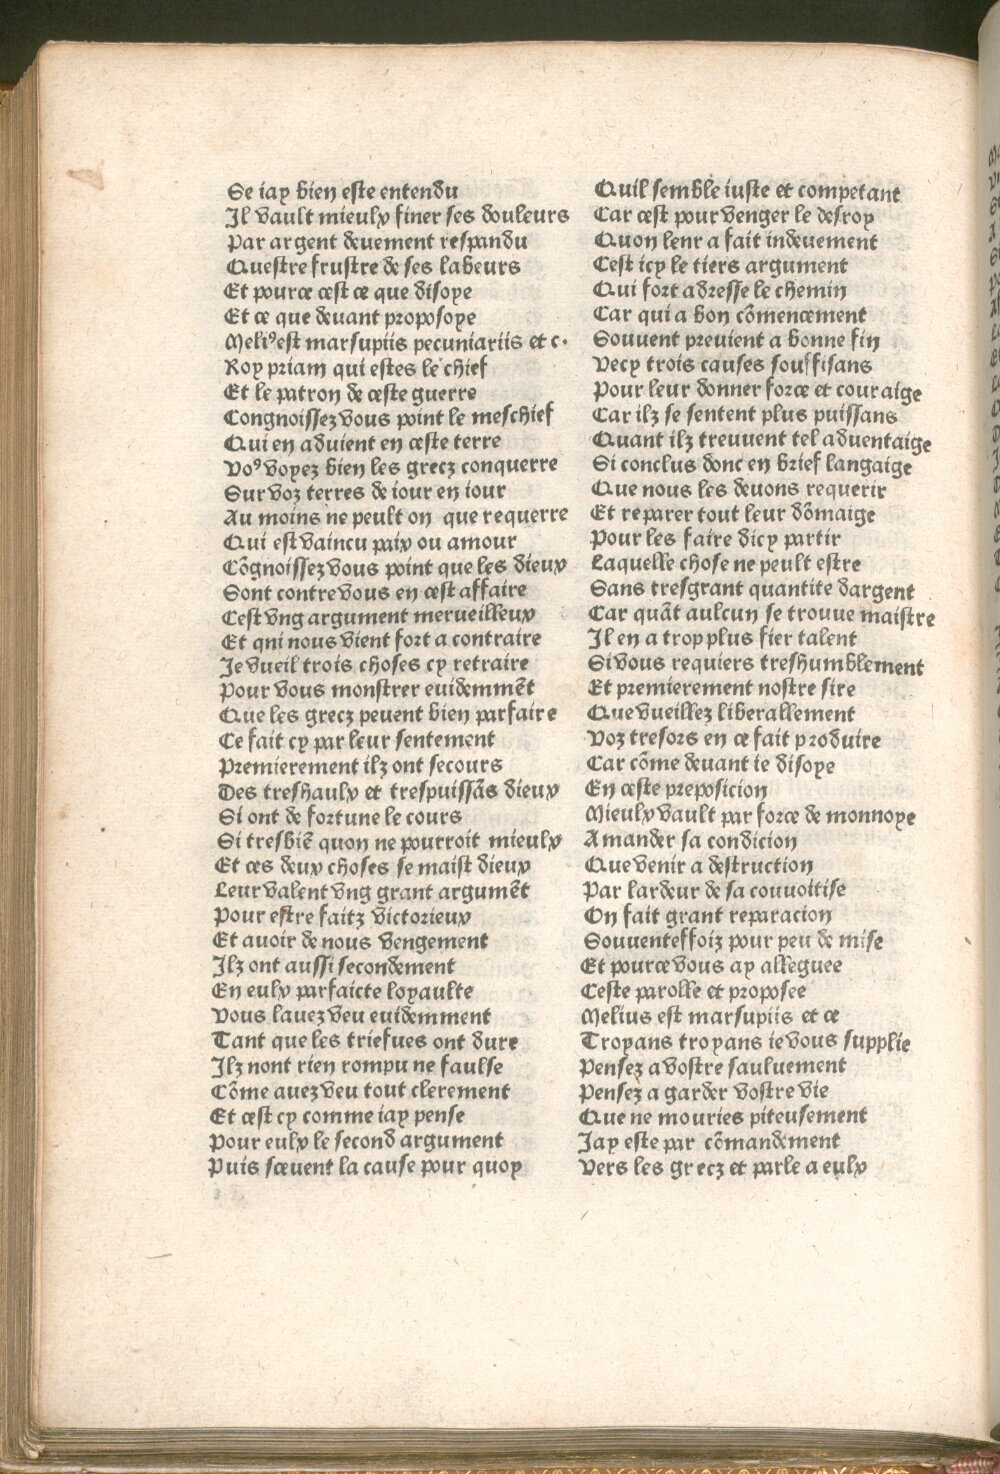 Se iay bien este entendu
Il vault mieulx finer ses douleurs
Par argent deuement respandu
Questre frustre de ses labeurs
Et pource cest ce que disoye
Et ce que deuant proposoye
Meliꝰ est marsupiis pecuniariis et c.
Roy priam qui estes le chief
Et le patron de ceste guerre
Congnoissez vous point le meschief
Qui en aduient en ceste terre
Voꝰ voyez bien les grecz conquerre
Sur voz terres de iour en iour
Au moins ne peult on que requerre
Qui est vaincu paix ou amour
Cõgnoissez vous point que les dieux
Sont contre vous en cest affaire
Cest vng argument merueilleux
Et qni nous vient fort a contraire
Je vueil trois choses cy retraire
Pour vous monstrer euidemmẽt
Que les grecz peuent bien parfaire
Ce fait cy par leur sentement
Premierement ilz ont secours
Des treshaulx et trespuissãs dieux
Si ont de fortune le cours
Si tresbiẽ quon ne pourroit mieulx
Et ces deux choses se maist dieux
Leur valent vng grant argumẽt
Pour estre faitz victorieux
Et auoir de nous vengement
Ilz ont aussi secondement
En eulx parfaicte loyaulte
Vous lauez veu euidemment
Tant que les triefues ont dure
Ilz nont rien rompu ne faulse
Cõme auez veu tout clerement
Et cest cy comme iay pense
Pour eulx le second argument
Puis sceuent la cause pour quoy
Quil semble iuste et competant
Car cest pour venger le desroy
Quon lenr a fait indeuement
Cest icy le tiers argument
Qui fort adresse le chemin
Car qui a bon cõmencement
Souuent preuient a bonne fin
Vecy trois causes souffisans
Pour leur donner force et couraige
Car ilz se sentent plus puissans
Quant ilz treuuent tel aduentaige
Si conclus donc en brief langaige
Que nous les deuons requerir
Et reparer tout leur dõmaige
Pour les faire dicy partir
Laquelle chose ne peult estre
Sans tresgrant quantite dargent
Car quãt aulcun se trouue maistre
Il en a trop plus fier talent
Si vous requiers treshumblement
Et premierement nostre sire
Que vueillez liberallement
Voz tresors en ce fait produire
Car cõme deuant ie disoye
En ceste preposicion
Mieulx vault par force de monnoye
Amander sa condicion
Que venir a destruction
Par lardeur de sa couuoitise
On fait grant reparacion
Souuenteffoiz pour peu de mise
Et pource vous ay alleguee
Ceste parolle et proposee
Melius est marsupiis et ce
Troyans troyans ie vous supplie
Pensez a vostre sauluement
Pensez a garder vostre vie
Que ne mouries piteusement
Jay este par cõmandement
Vers les grecz et parle a eulx